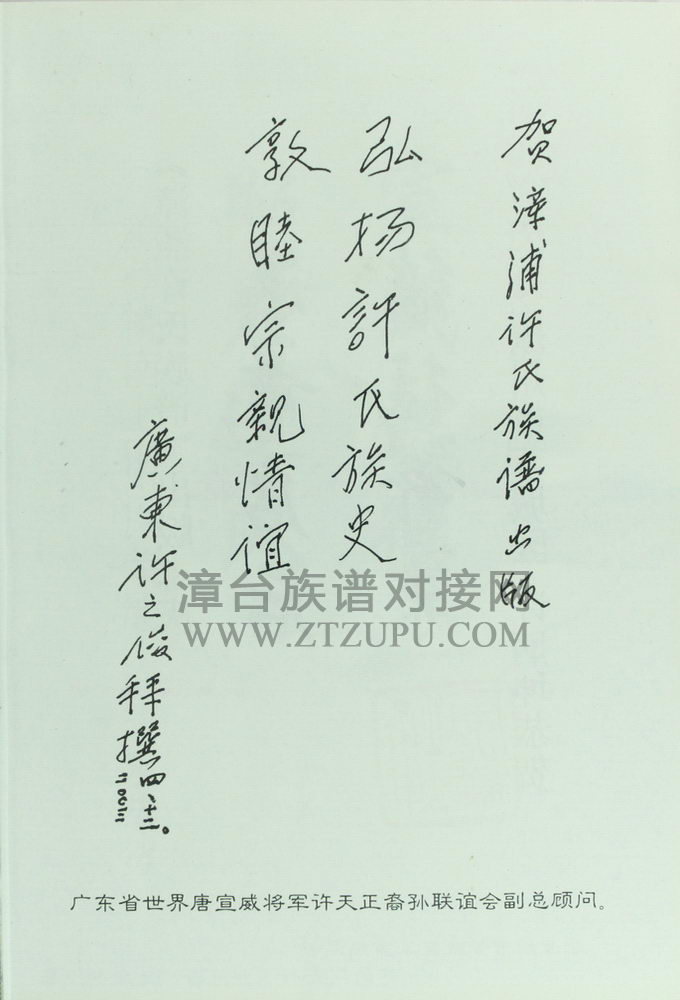 贺漳浦许氏族谱出版
弘扬許氏族史
敦睦宗親情谊
廣東许之俊拜撰
四、十二。
漳台族谱对接网
WWW.ZTZUPU.COM
广东省世界唐宣威将军许天正裔孙联谊会副总顾问。